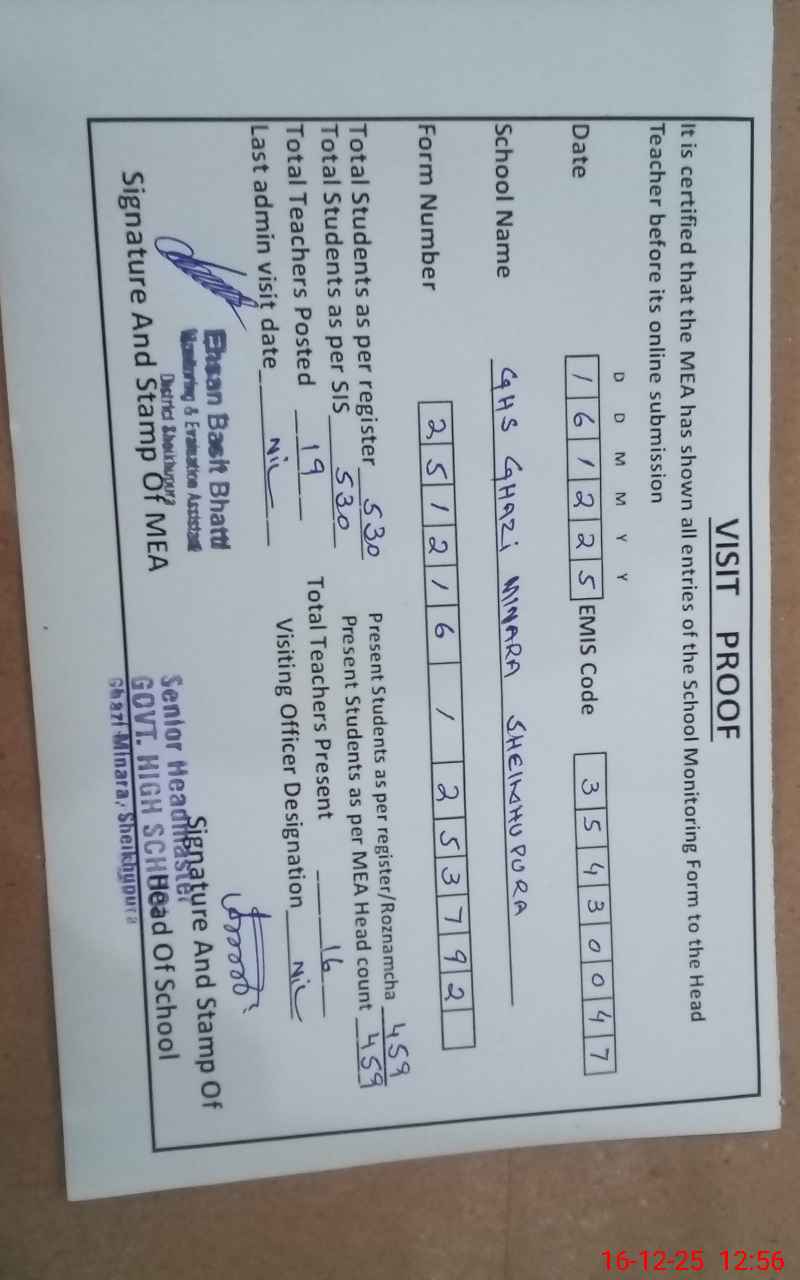 VISIT PROOF
It is certified that the MEA has shown all entries of the School Monitoring Form to the Head
Teacher before its online submission
D D M M Y Y
Date 1 6 1 2 2 5 EMIS Code 3 5 4 3 0 0 4 7
School Name GHS GHAZI MINARA SHEIKHUPURA
Form Number 2 5 1 2 1 6 / 2 5 3 7 9 2
Total Students as per register 530 Present Students as per register/Roznamcha 459
Total Students as per SIS 530 Present Students as per MEA Head count 459
Total Teachers Posted 19 Total Teachers Present 16
Last admin visit date Nil Visiting Officer Designation Nil
Ehsan Basit Bhatti
Monitoring & Evaluation Assistant
District Sheikhupura
Signature And Stamp Of MEA
Signature And Stamp Of
Head Of School
Senior Headmaster
GOVT. HIGH SCH
Ghazi Minara, Sheikhupura
16-12-25 12:56